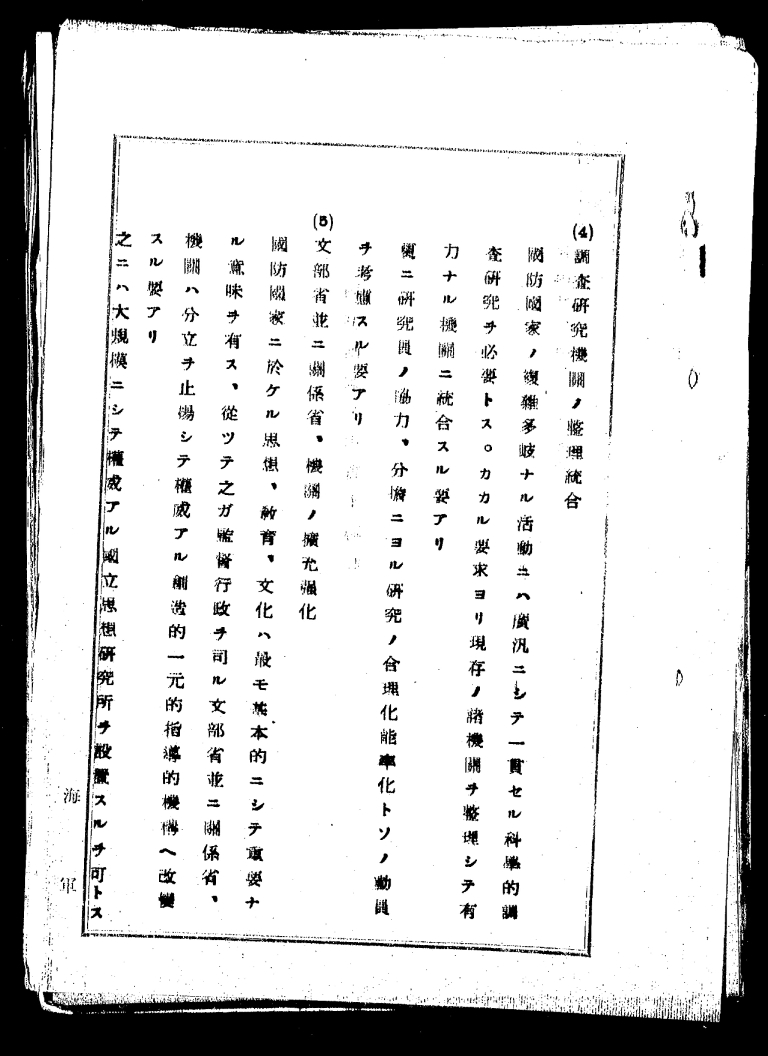 (4)調査研究機關ノ整理統合
國防國家ノ複雜多岐ナル活動ニハ廣汎ニシテ一貫セル科學的調
査研究ヲ必要トス。カカル要求ヨリ現存ノ諸機關ヲ整理シテ有
力ナル機關ニ統合スル要アリ
更ニ研究員ノ協力、分擔ニヨル研究ノ合理化能率化トソノ動員
ヲ考慮スル要アリ
(5)文部省並ニ關係省、機關ノ擴充强化
國防國家ニ於ケル思想、敎育、文化ハ最モ基本的ニシテ重要ナ
ル意味ヲ有ス、從ツテ之ガ監督行政ヲ司ル文部省並ニ關係省、
機關ハ分立ヲ止揚シテ權威アル創造的一元的指導的機構ヘ改變
スル要アリ
之ニハ大規模ニシテ權威アル國立思想硏究所ヲ設置スルヲ可トス
海軍